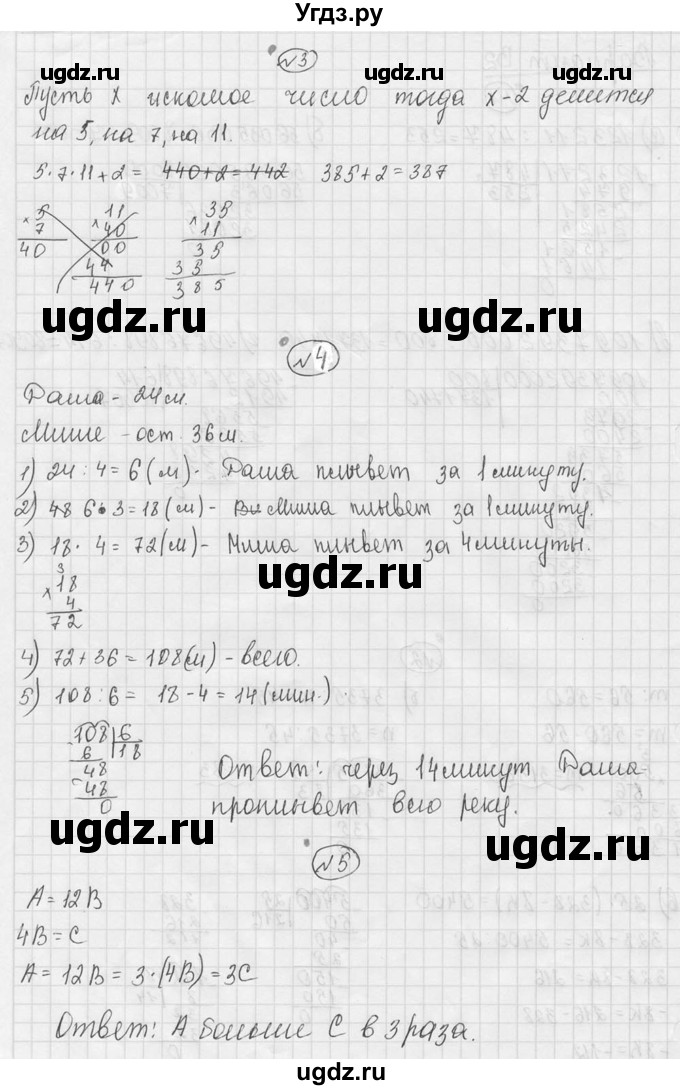 Угдз.ру
№3
Пусть x искомое число тогда x-2 делится
на 5, на 7, на 11.
5·7·11+2= 440+2=442 385+2=387
× 5
7
40
11
× 40
00
44
440
35
× 11
35
35
385
№4
Даша - 24м.
Мише - ост. 36м.
1) 24:4=6(м)- Даша плывет за 1 минуту.
2) 48 6·3=18(м)- Вы Миша плывет за 1 минуту.
3) 18·4=72(м)- Миша плывет за 4 минуты.
3
× 18
4
72
4) 72+36=108(м) - всего.
5) 108:6= 18-4=14(мин.)
108 6
6 18
48
-48
0
Ответ: через 14 минут Даша
проплывет всю реку.
№5
A=12B
4B=C
A=12B=3·(4B)=3C
Ответ: A больше C в 3 раза.
ugdz.ru
ugdz.ru
ugdz.ru
ugdz.ru
ugdz.ru
ugdz.ru
ugdz.ru
ugdz.ru
ugdz.ru
ugdz.ru
ugdz.ru
ugdz.ru
ugdz.ru